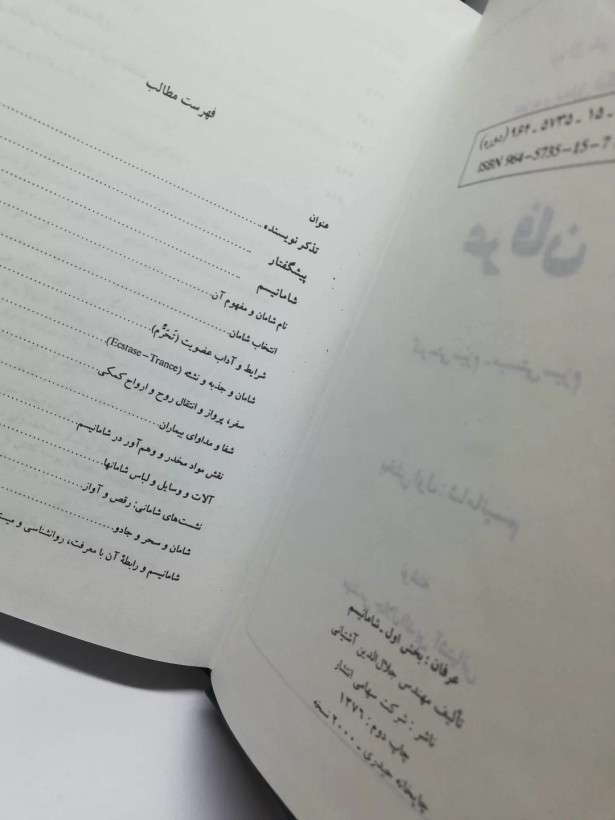 ۹۶۴ - ۵۷۳۵ - ۱۵ - (دوره)
ISBN 964-5735-15-7
عرفان : بخش اول ـ شامانیسم
تألیف مهندس جلال‌الدین آشتیانی
ناشر : شرکت سهامی انتشار
چاپ دوم : ۱۳۷۶
چاپخانه حیدری ـ ۲۰۰۰ نسخه
فهرست مطالب
عنوان
تذکر نویسنده
پیشگفتار
شامانیسم
نام شامان و مفهوم آن
انتخاب شامان
شرایط و آداب عضویت (تَحَرُّم)
شامان و جذبه و نشئه (Ecstase - Trance)
سفر، پرواز و انتقال روح و ارواح کمکی
شفا و مداوای بیماران
نقش مواد مخدر و وهم‌آور در شامانیسم
آلات و وسایل و لباس شامانها
نشست‌های شامانی: رقص و آواز
شامان و سحر و جادو
شامانیسم و رابطهٔ آن با معرفت، روانشناسی و